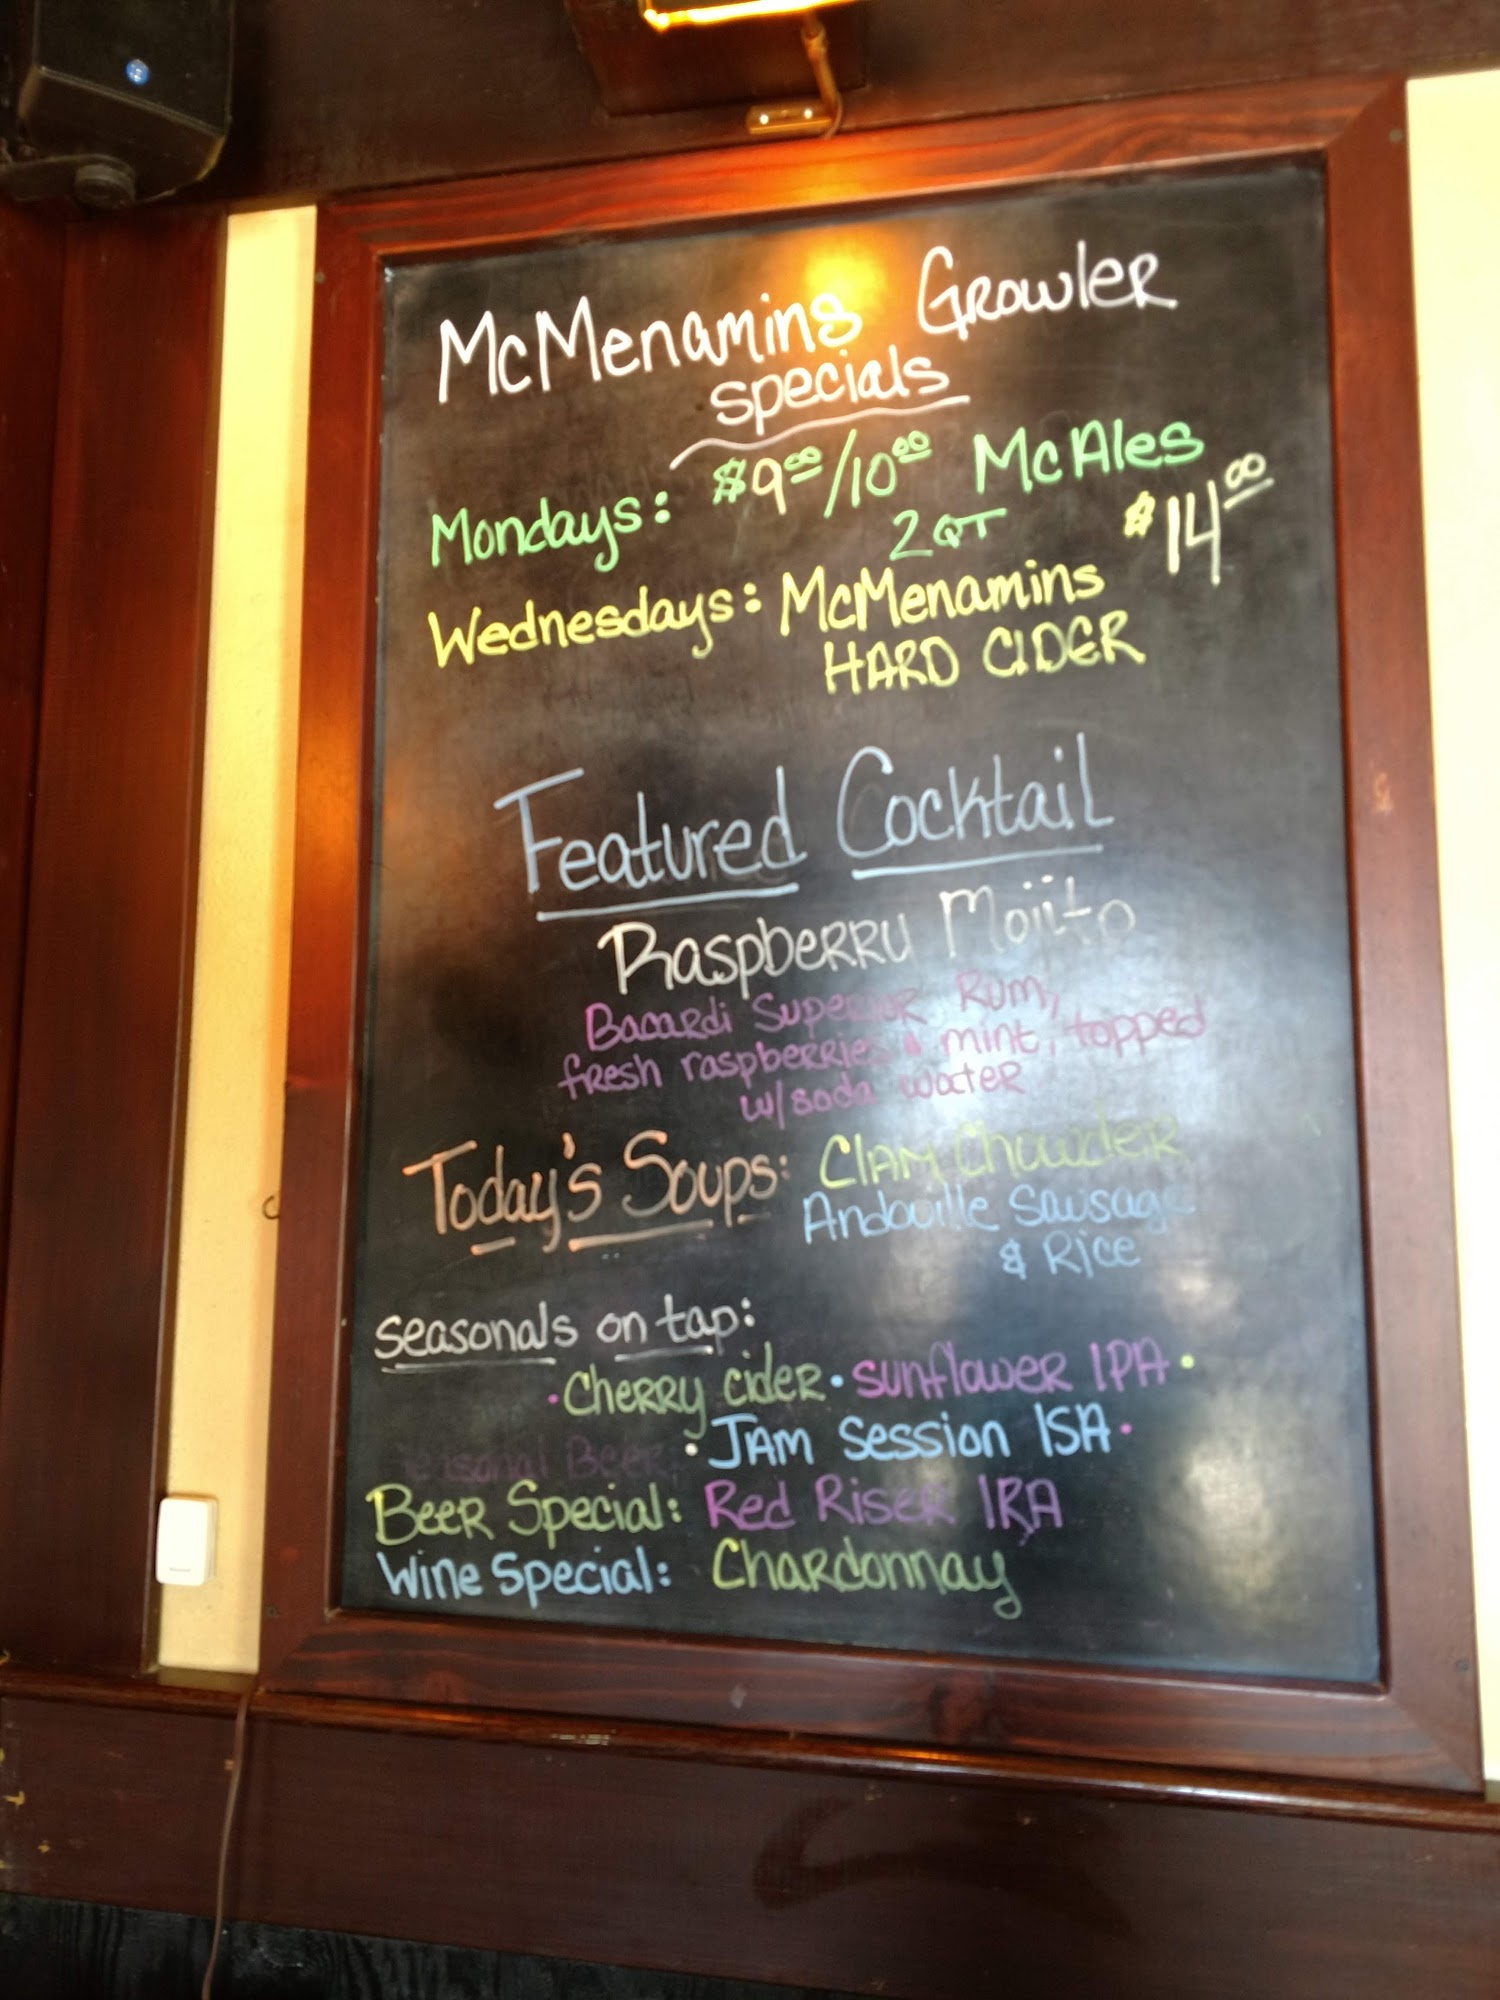 McMenamins Growler
specials
Mondays: $9.00/10.00 McAles
2 QT
Wednesdays: McMenamins $14.00
HARD CIDER
Featured Cocktail
Raspberry Mojito
Bacardi Superior Rum,
fresh raspberries & mint, topped
w/soda water
Today's Soups: Clam Chowder
Andouille Sausage
& Rice
seasonals on tap:
• Cherry cider • sunflower IPA •
Seasonal Beer: • JAM Session ISA •
Beer Special: Red Riser IRA
Wine Special: Chardonnay